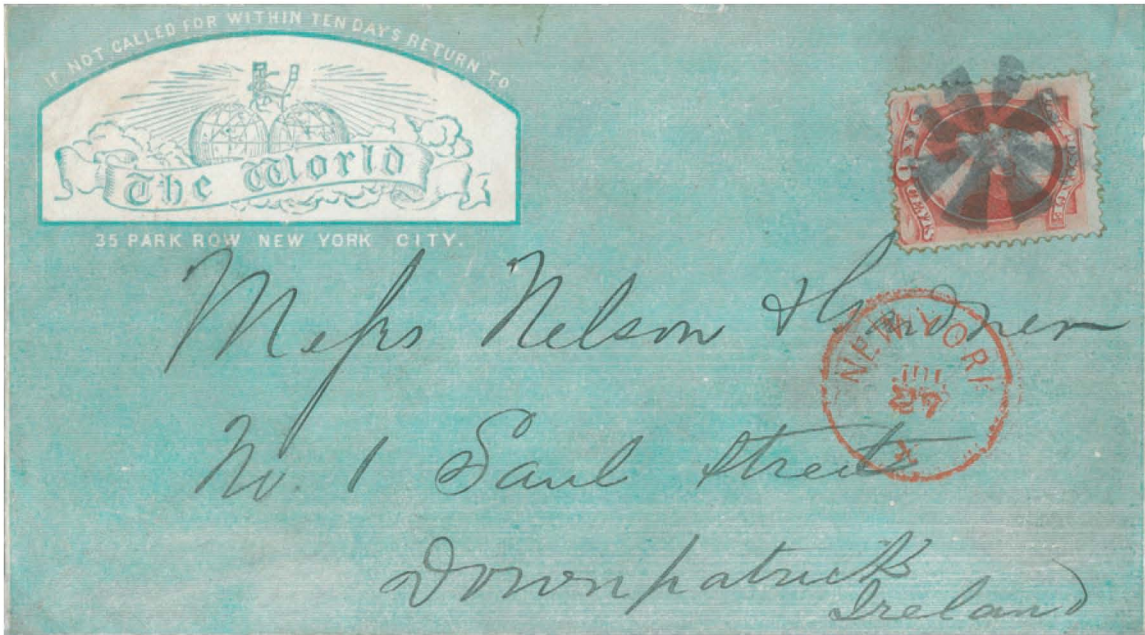 IF NOT CALLED FOR WITHIN TEN DAYS RETURN TO
The World
35 PARK ROW NEW YORK CITY.
Messrs Nelson &
NEW YORK
27
No. 1 Saul Street
Downpatrick
Ireland